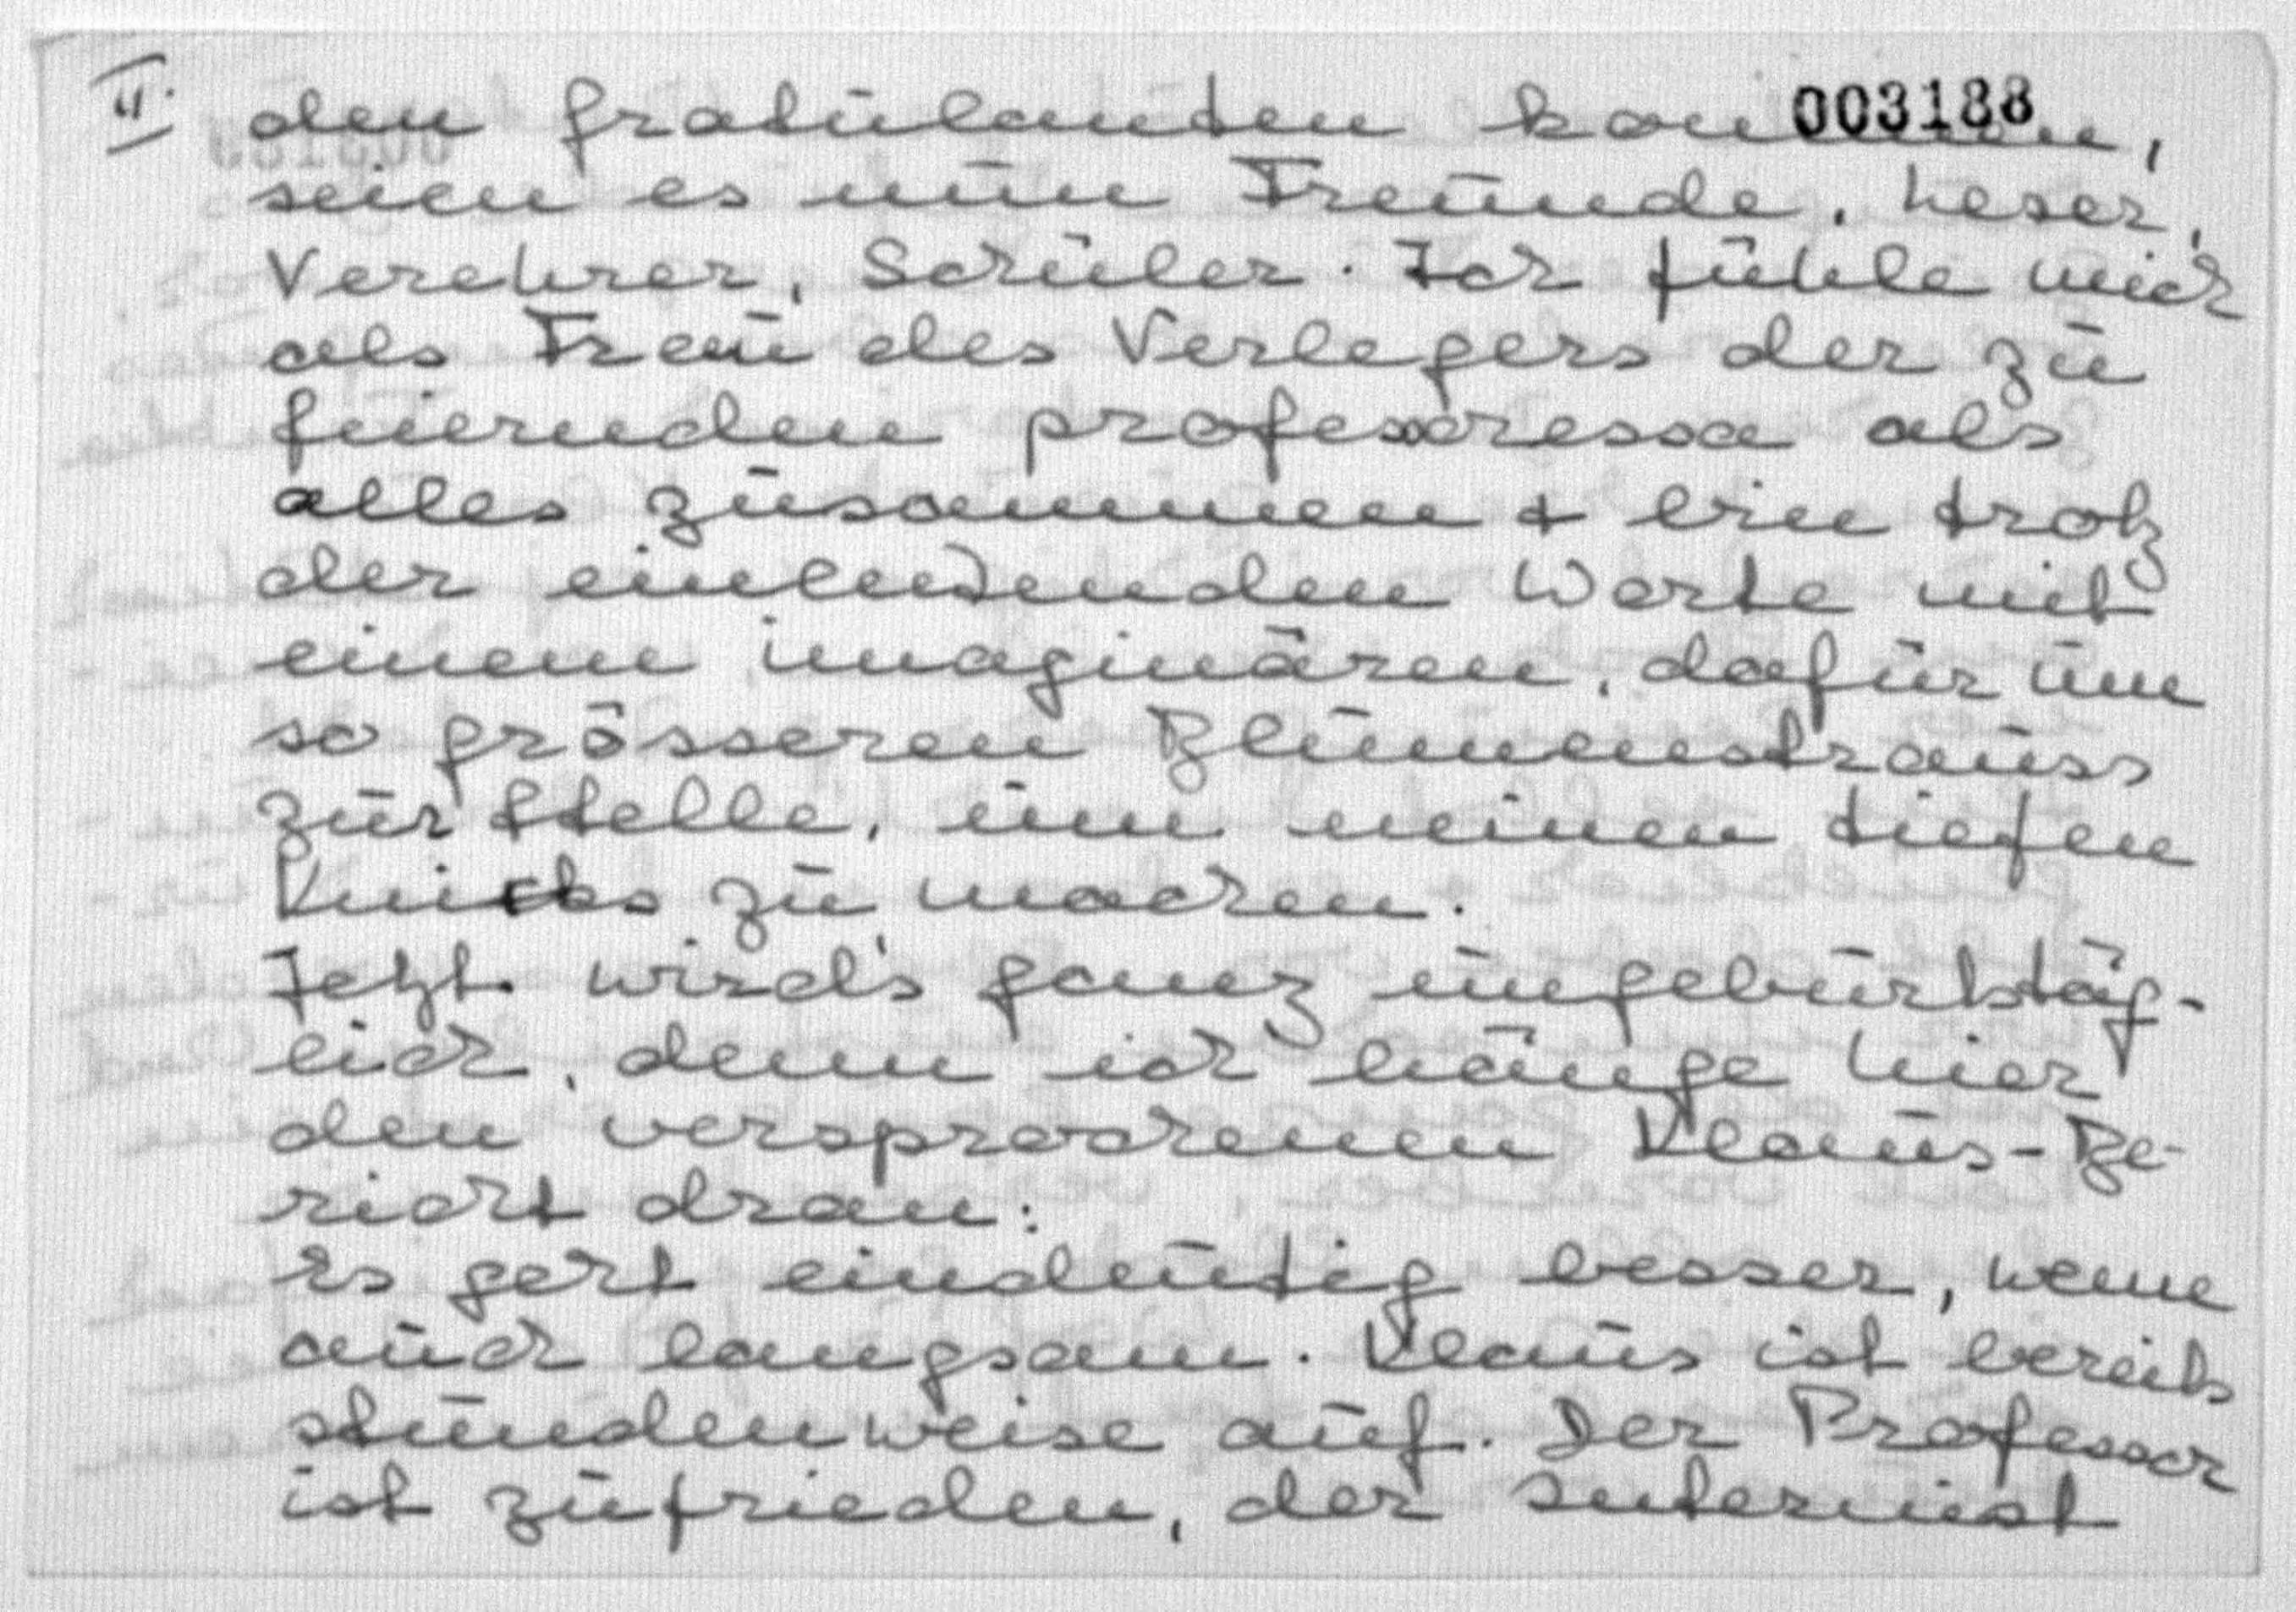 II. den Gratulanten kommen, 003188
seien es nun Freunde, Leser,
Verehrer, Schüler. Ich fühle mich
als Frau des Verlegers der zu
feiernden professoressa als
alles zusammen + bin trotz
der einladenden Worte mit
einem imaginären, dafür um
so grösseren Blumenstrauss
zur Stelle, um meinen tiefen
Knicks zu machen.
Jetzt wird's ganz ungeburtstäg-
lich, denn ich hänge hier
den versprochenen Klaus-Be-
richt dran:
Es geht eindeutig besser, wenn
auch langsam. Klaus ist bereits
stundenweise auf. Der Professor
ist zufrieden, der Internist